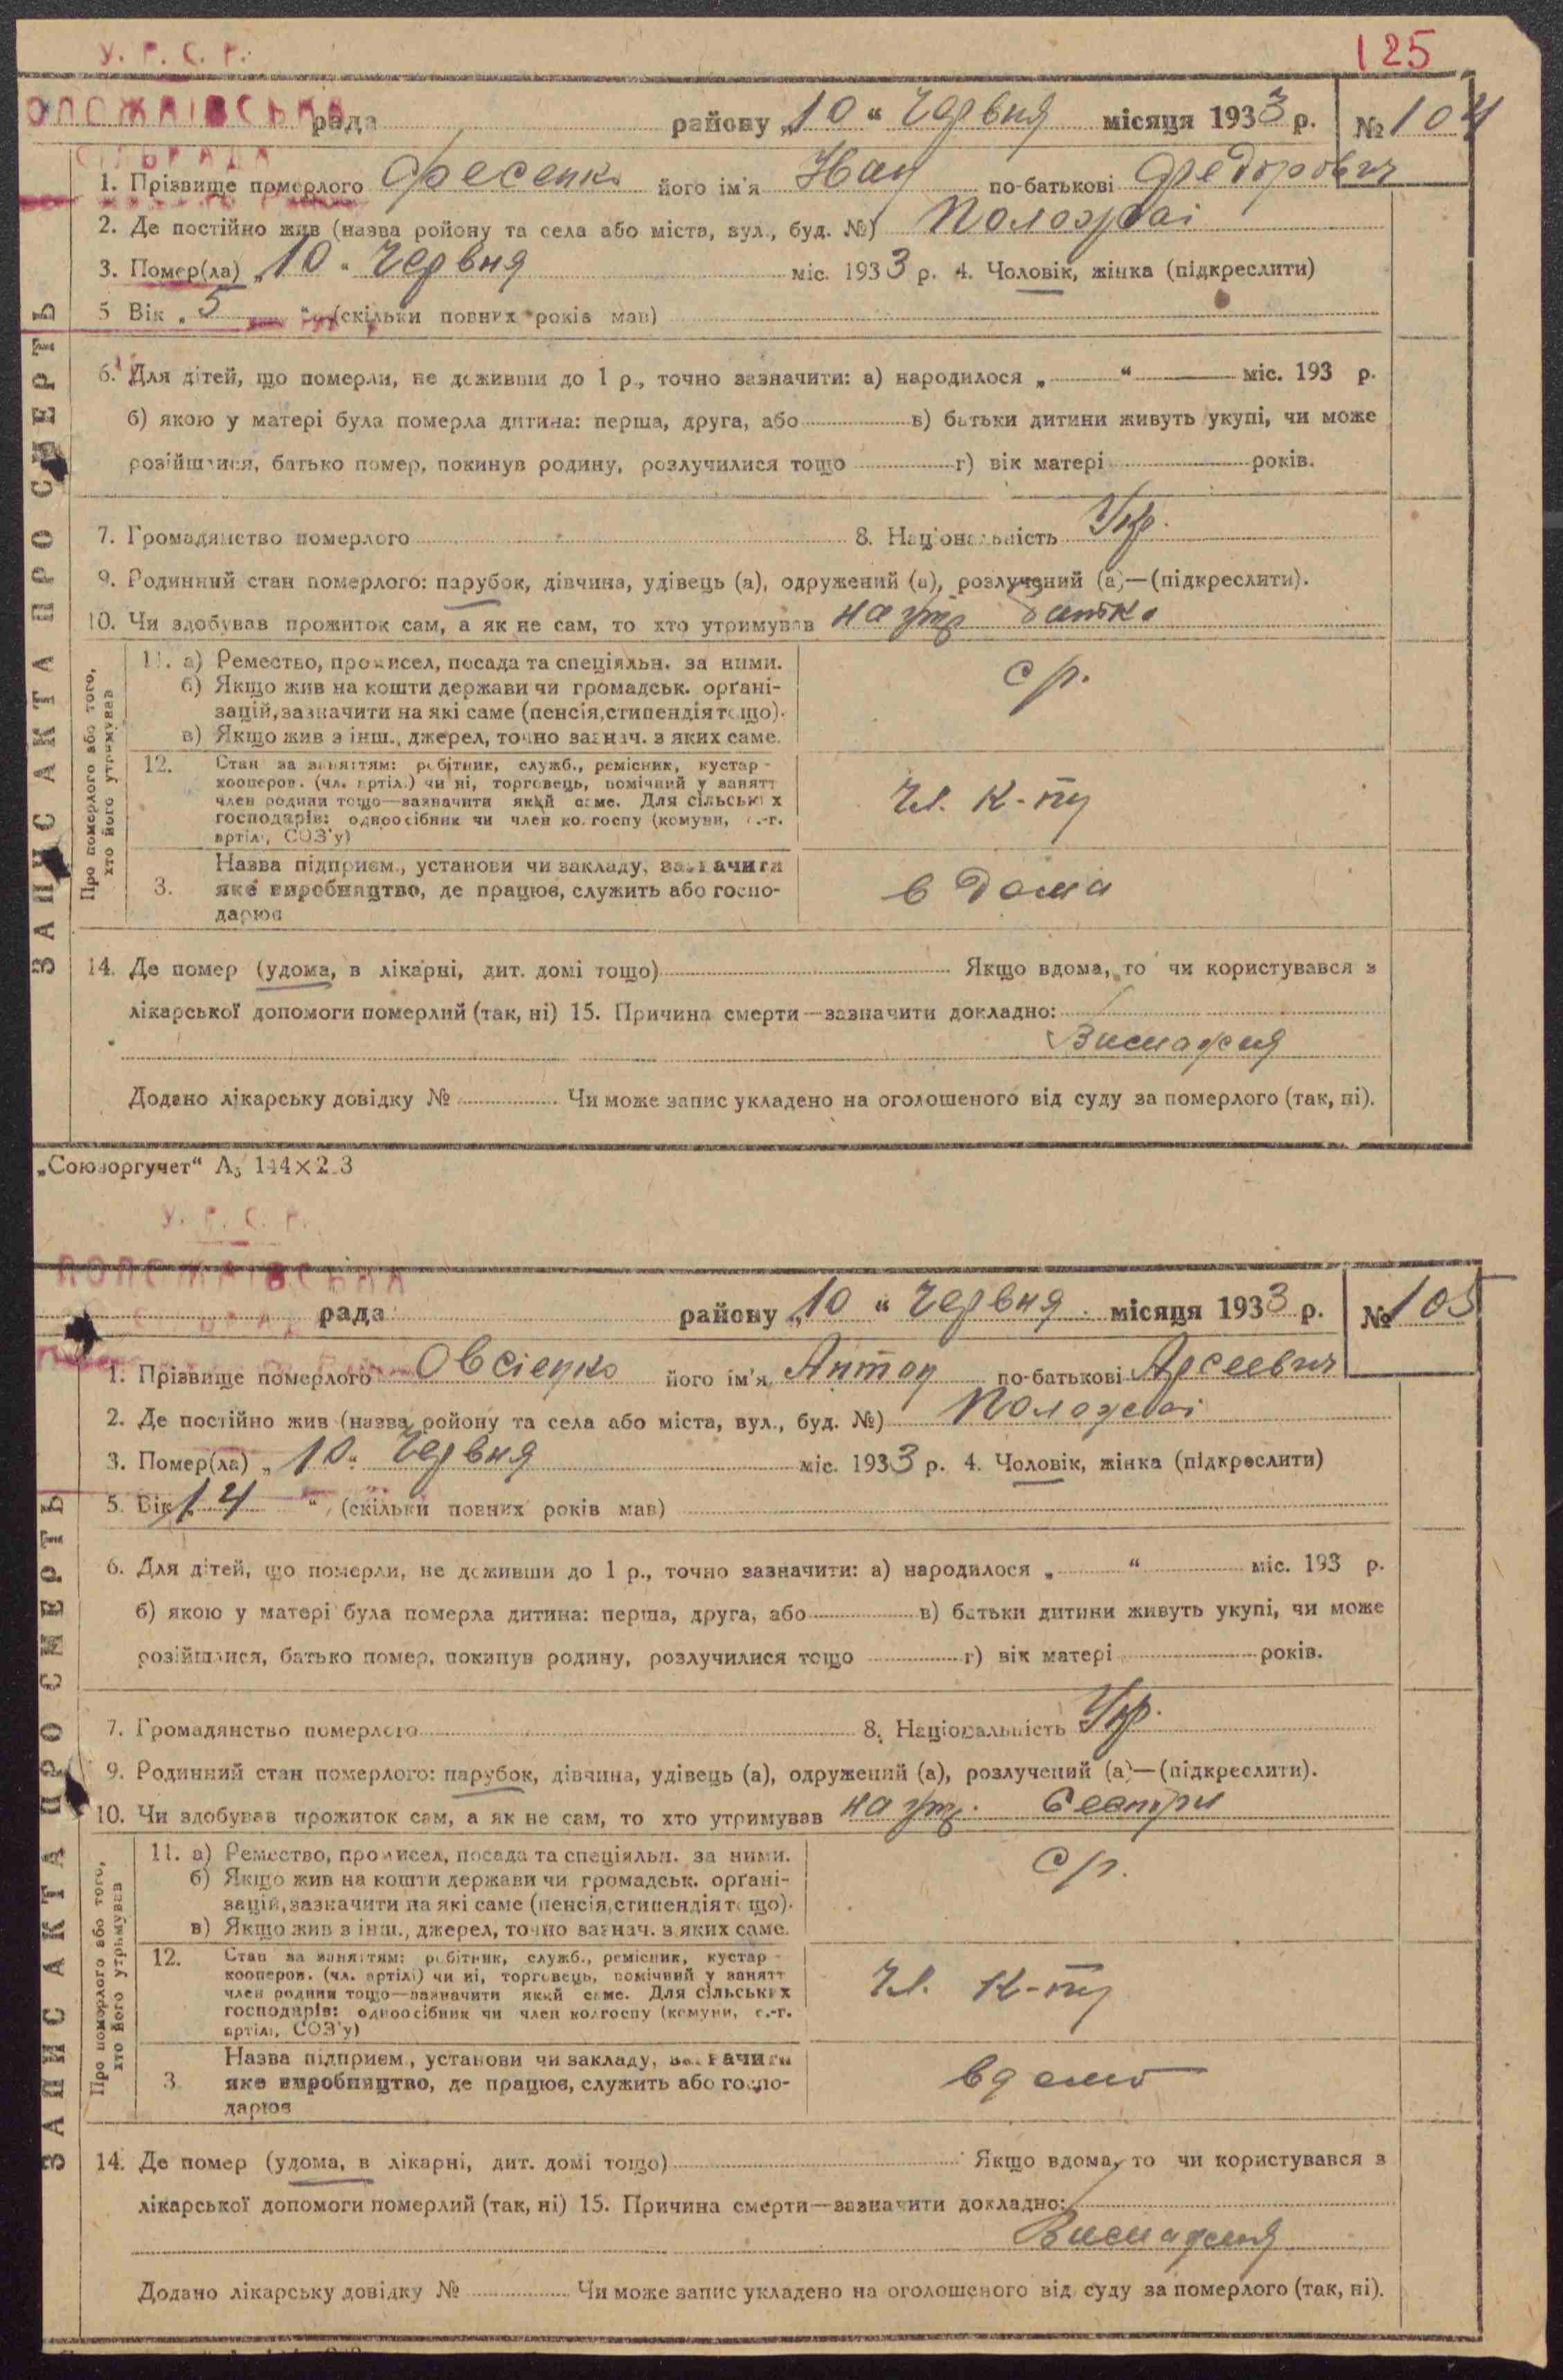 У. Р. С. Р.
125
ПОЛОЖАЇВСЬКА
рада района „10“ Червня місяця 1933 р. № 104
СІЛЬРАДА
1. Прізвище померлого Фесенко його ім'я Іван по-батькові Федорович
2. Де постійно жив (назва ройону та села або міста, вул., буд. №) Положаі
3. Помер(ла) „10“ Червня міс. 1933 р. 4. Чоловік, жінка (підкреслити)
5 Вік „5“ (скільки повних років мав)
6. Для дітей, що померли, не доживши до 1 р., точно зазначити: а) народилося „ “ міс. 193 р.
б) якою у матері була померла дитина: перша, друга, або в) батьки дитини живуть укупі, чи може
розійшлися, батько помер, покинув родину, розлучилися тощо г) вік матері років.
7. Громадянство померлого 8. Національність Укр.
9. Родинний стан померлого: парубок, дівчина, удівець (а), одружений (а), розлучений (а)—(підкреслити).
10. Чи здобував прожиток сам, а як не сам, то хто утримував на утр батька
ЗАПИС АКТА ПРО СМЕРТЬ
Про померлого або того,
хто його утримував
11. а) Ремество, промисел, посада та спеціяльн. за ними.
б) Якщо жив на кошти держави чи громадськ. орґані-
зацій, зазначити на які саме (пенсія, стипендія тощо).
в) Якщо жив з інш., джерел, точно зазнач. з яких саме.
ср.
12. Стан за заняттям: робітник, служб., ремісник, кустар -
кооперов. (чл. артілі) чи ні, торговець, помічний у занятт
член родини тощо—зазначити який саме. Для сільських
господарів: одноосібник чи член колгоспу (комуни, с.-г.
артілі, СОЗ'у)
Чл. к-пу
3. Назва підприєм., установи чи закладу, зазначити
яке виробництво, де працює, служить або госпо-
дарює
в дома
14. Де помер (удома, в лікарні, дит. домі тощо) Якщо вдома, то чи користувався з
лікарської допомоги померлий (так, ні) 15. Причина смерти—зазначити докладно:
Виснаження
Додано лікарську довідку № Чи може запис укладено на оголошеного від суду за померлого (так, ні).
„Союзоргучет“ А₅ 144×2.3
У. Р. С. Р.
ПОЛОЖАЇВСЬКА
рада району „10“ Червня місяця 1933 р. № 105
1. Прізвище померлого Овсієнко його ім'я Антон по-батькові Арсеевич
2. Де постійно жив (назва ройону та села або міста, вул., буд. №) Положаі
3. Помер(ла) „10“ Червня міс. 1933 р. 4. Чоловік, жінка (підкреслити)
5. Вік „14“ (скільки повних років мав)
6. Для дітей, що померли, не доживши до 1 р., точно зазначити: а) народилося „ “ міс. 193 р.
б) якою у матері була померла дитина: перша, друга, або в) батьки дитини живуть укупі, чи може
розійшлися, батько помер, покинув родину, розлучилися тощо г) вік матері років.
7. Громадянство померлого 8. Національність Укр.
9. Родинний стан померлого: парубок, дівчина, удівець (а), одружений (а), розлучений (а)—(підкреслити).
10. Чи здобував прожиток сам, а як не сам, то хто утримував на утр. Сестри
ЗАПИС АКТА ПРО СМЕРТЬ
Про померлого або того,
хто його утримував
11. а) Ремество, промисел, посада та спеціяльн. за ними.
б) Якщо жив на кошти держави чи громадськ. орґані-
зацій, зазначити на які саме (пенсія, стипендія тощо).
в) Якщо жив з інш., джерел, точно зазнач. з яких саме.
ср.
12. Стан за заняттям: робітник, служб., ремісник, кустар -
кооперов. (чл. артілі) чи ні, торговець, помічний у занятт
член родини тощо—зазначити який саме. Для сільських
господарів: одноосібник чи член колгоспу (комуни, с.-г.
артілі, СОЗ'у)
Чл. к-пу
3. Назва підприєм., установи чи закладу, зазначити
яке виробництво, де працює, служить або госпо-
дарює
вдома
14. Де помер (удома, в лікарні, дит. домі тощо) Якщо вдома, то чи користувався з
лікарської допомоги померлий (так, ні) 15. Причина смерти—зазначити докладно:
Виснаження
Додано лікарську довідку № Чи може запис укладено на оголошеного від суду за померлого (так, ні).